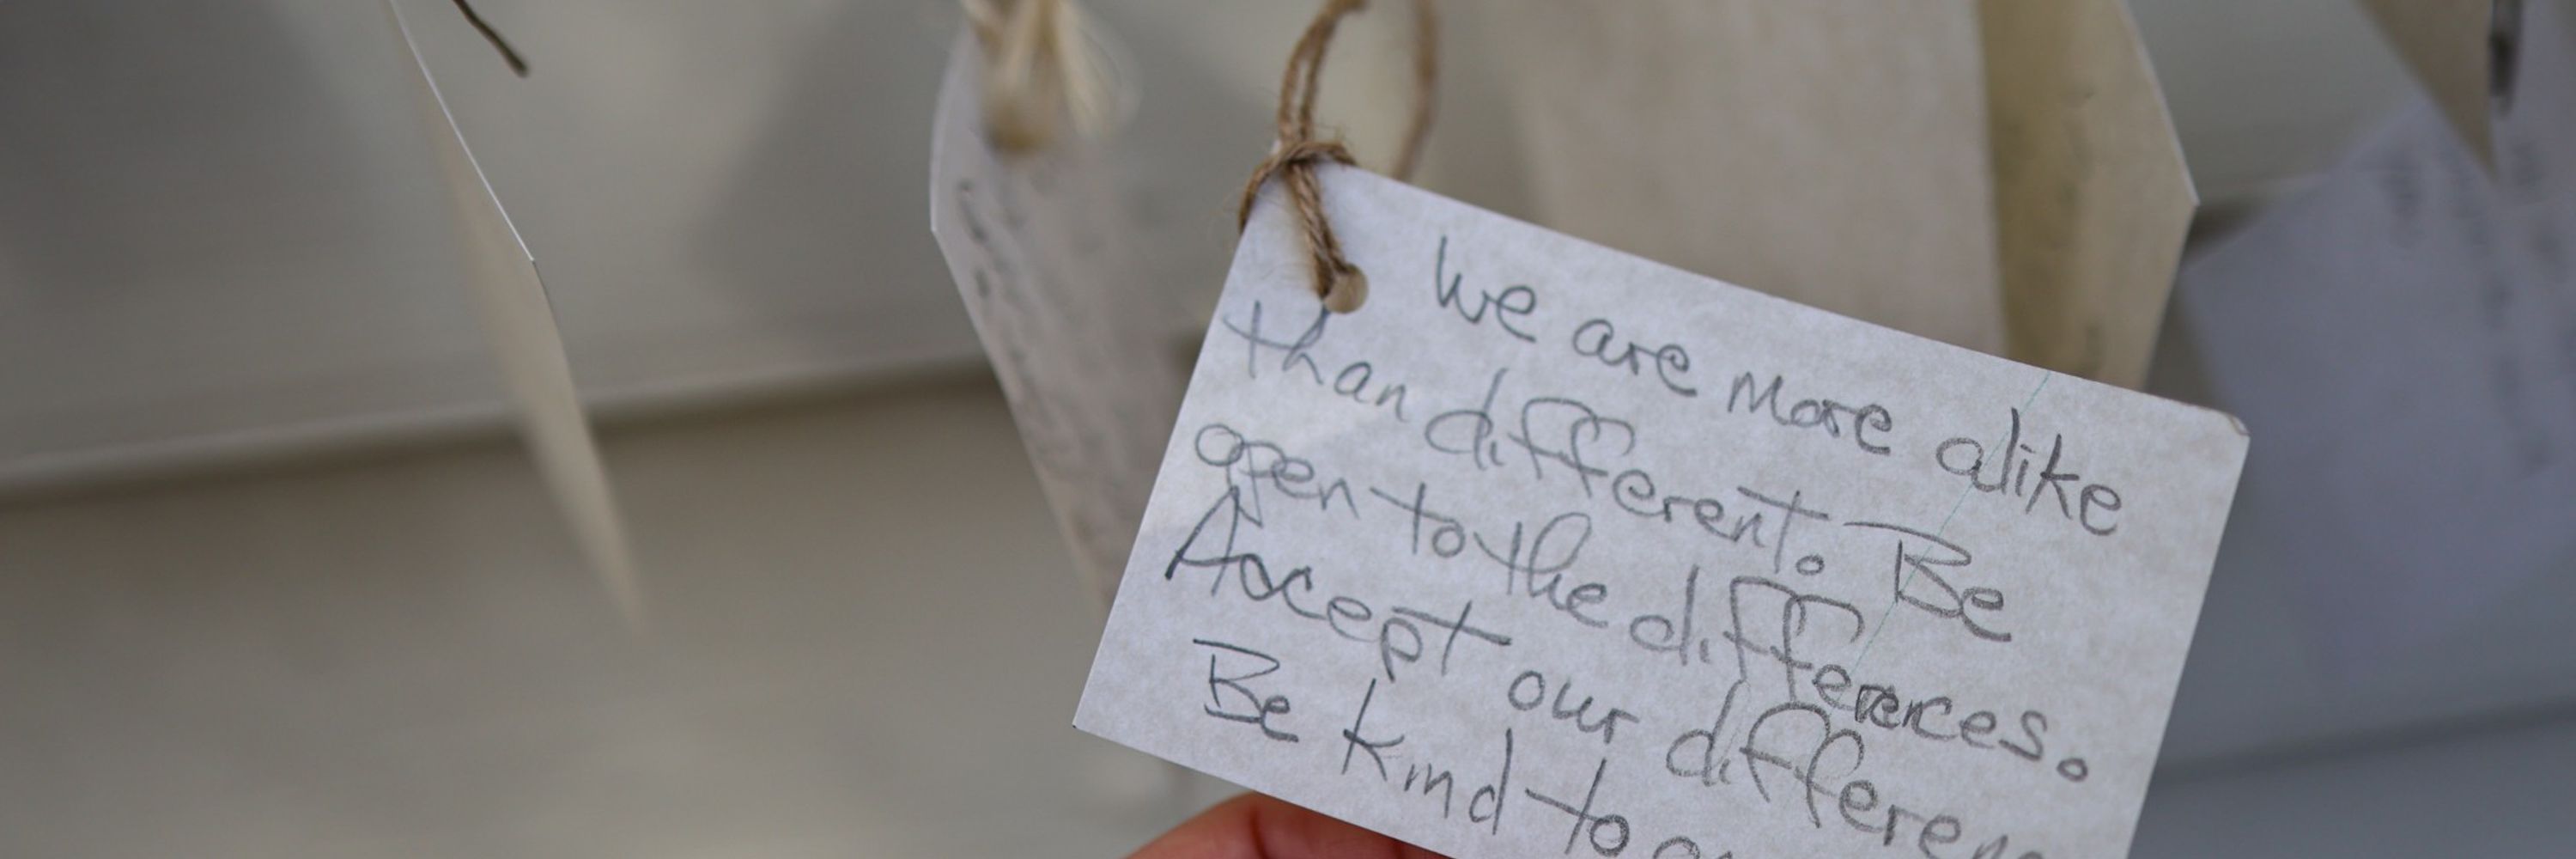 We are more alike
than different. Be
open to the differences.
Accept our
Be kind to